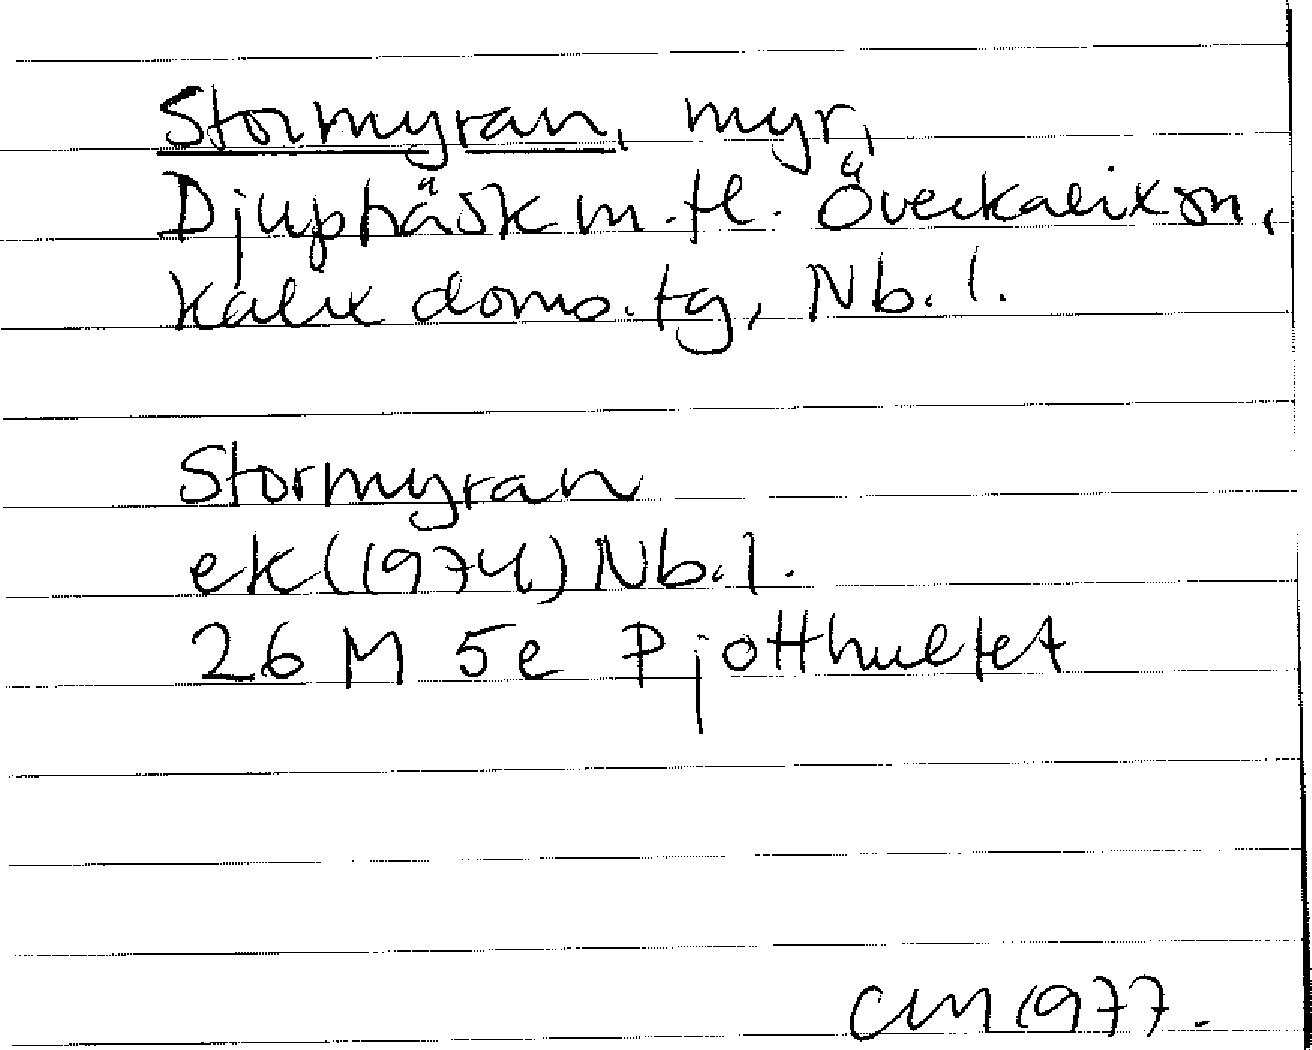 Stormyran, myr,
Djupträsk m.fl. Överkalix sn,
Kalix doms.tg, Nb. l.
Stormyran
ek (1974) Nb. l.
26 M 5e Pjotthultet
CM 1977.